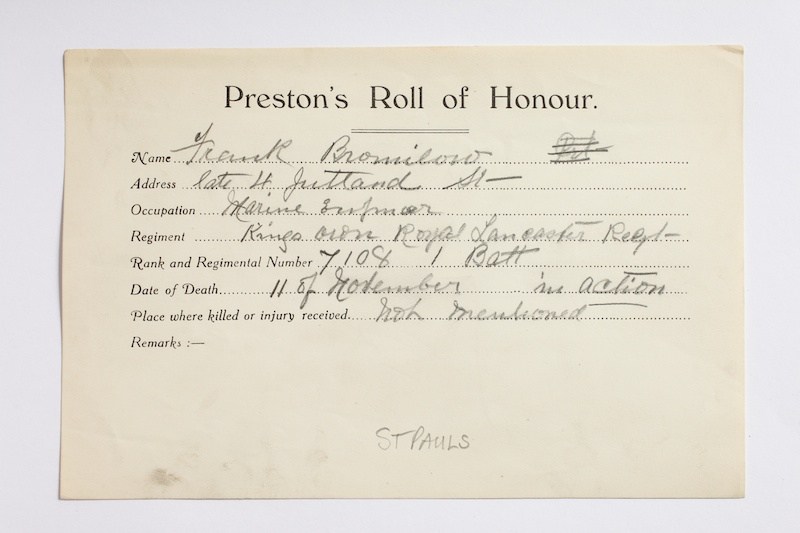 Preston's Roll of Honour.
Name Frank Bromilow
Address late 4 Jutland St
Occupation Marine
Regiment Kings own Royal Lancaster Regt
Rank and Regimental Number 7108 1 Batt
Date of Death 11 of November in action
Place where killed or injury received Not mentioned
Remarks :—
ST PAULS